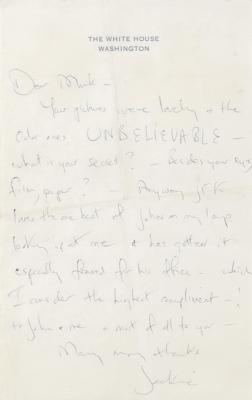 THE WHITE HOUSE
WASHINGTON
Dear Mark -
Your pictures were lovely & the
color ones UNBELIEVABLE -
what is your secret? - Besides your eye,
film, paper? - Anyway JFK
loves the one best of John on my lap
looking up at me & has gotten it
especially framed for his office - which
I consider the highest compliment - !
to John & me & most of all to you -
Many many thanks
Jackie